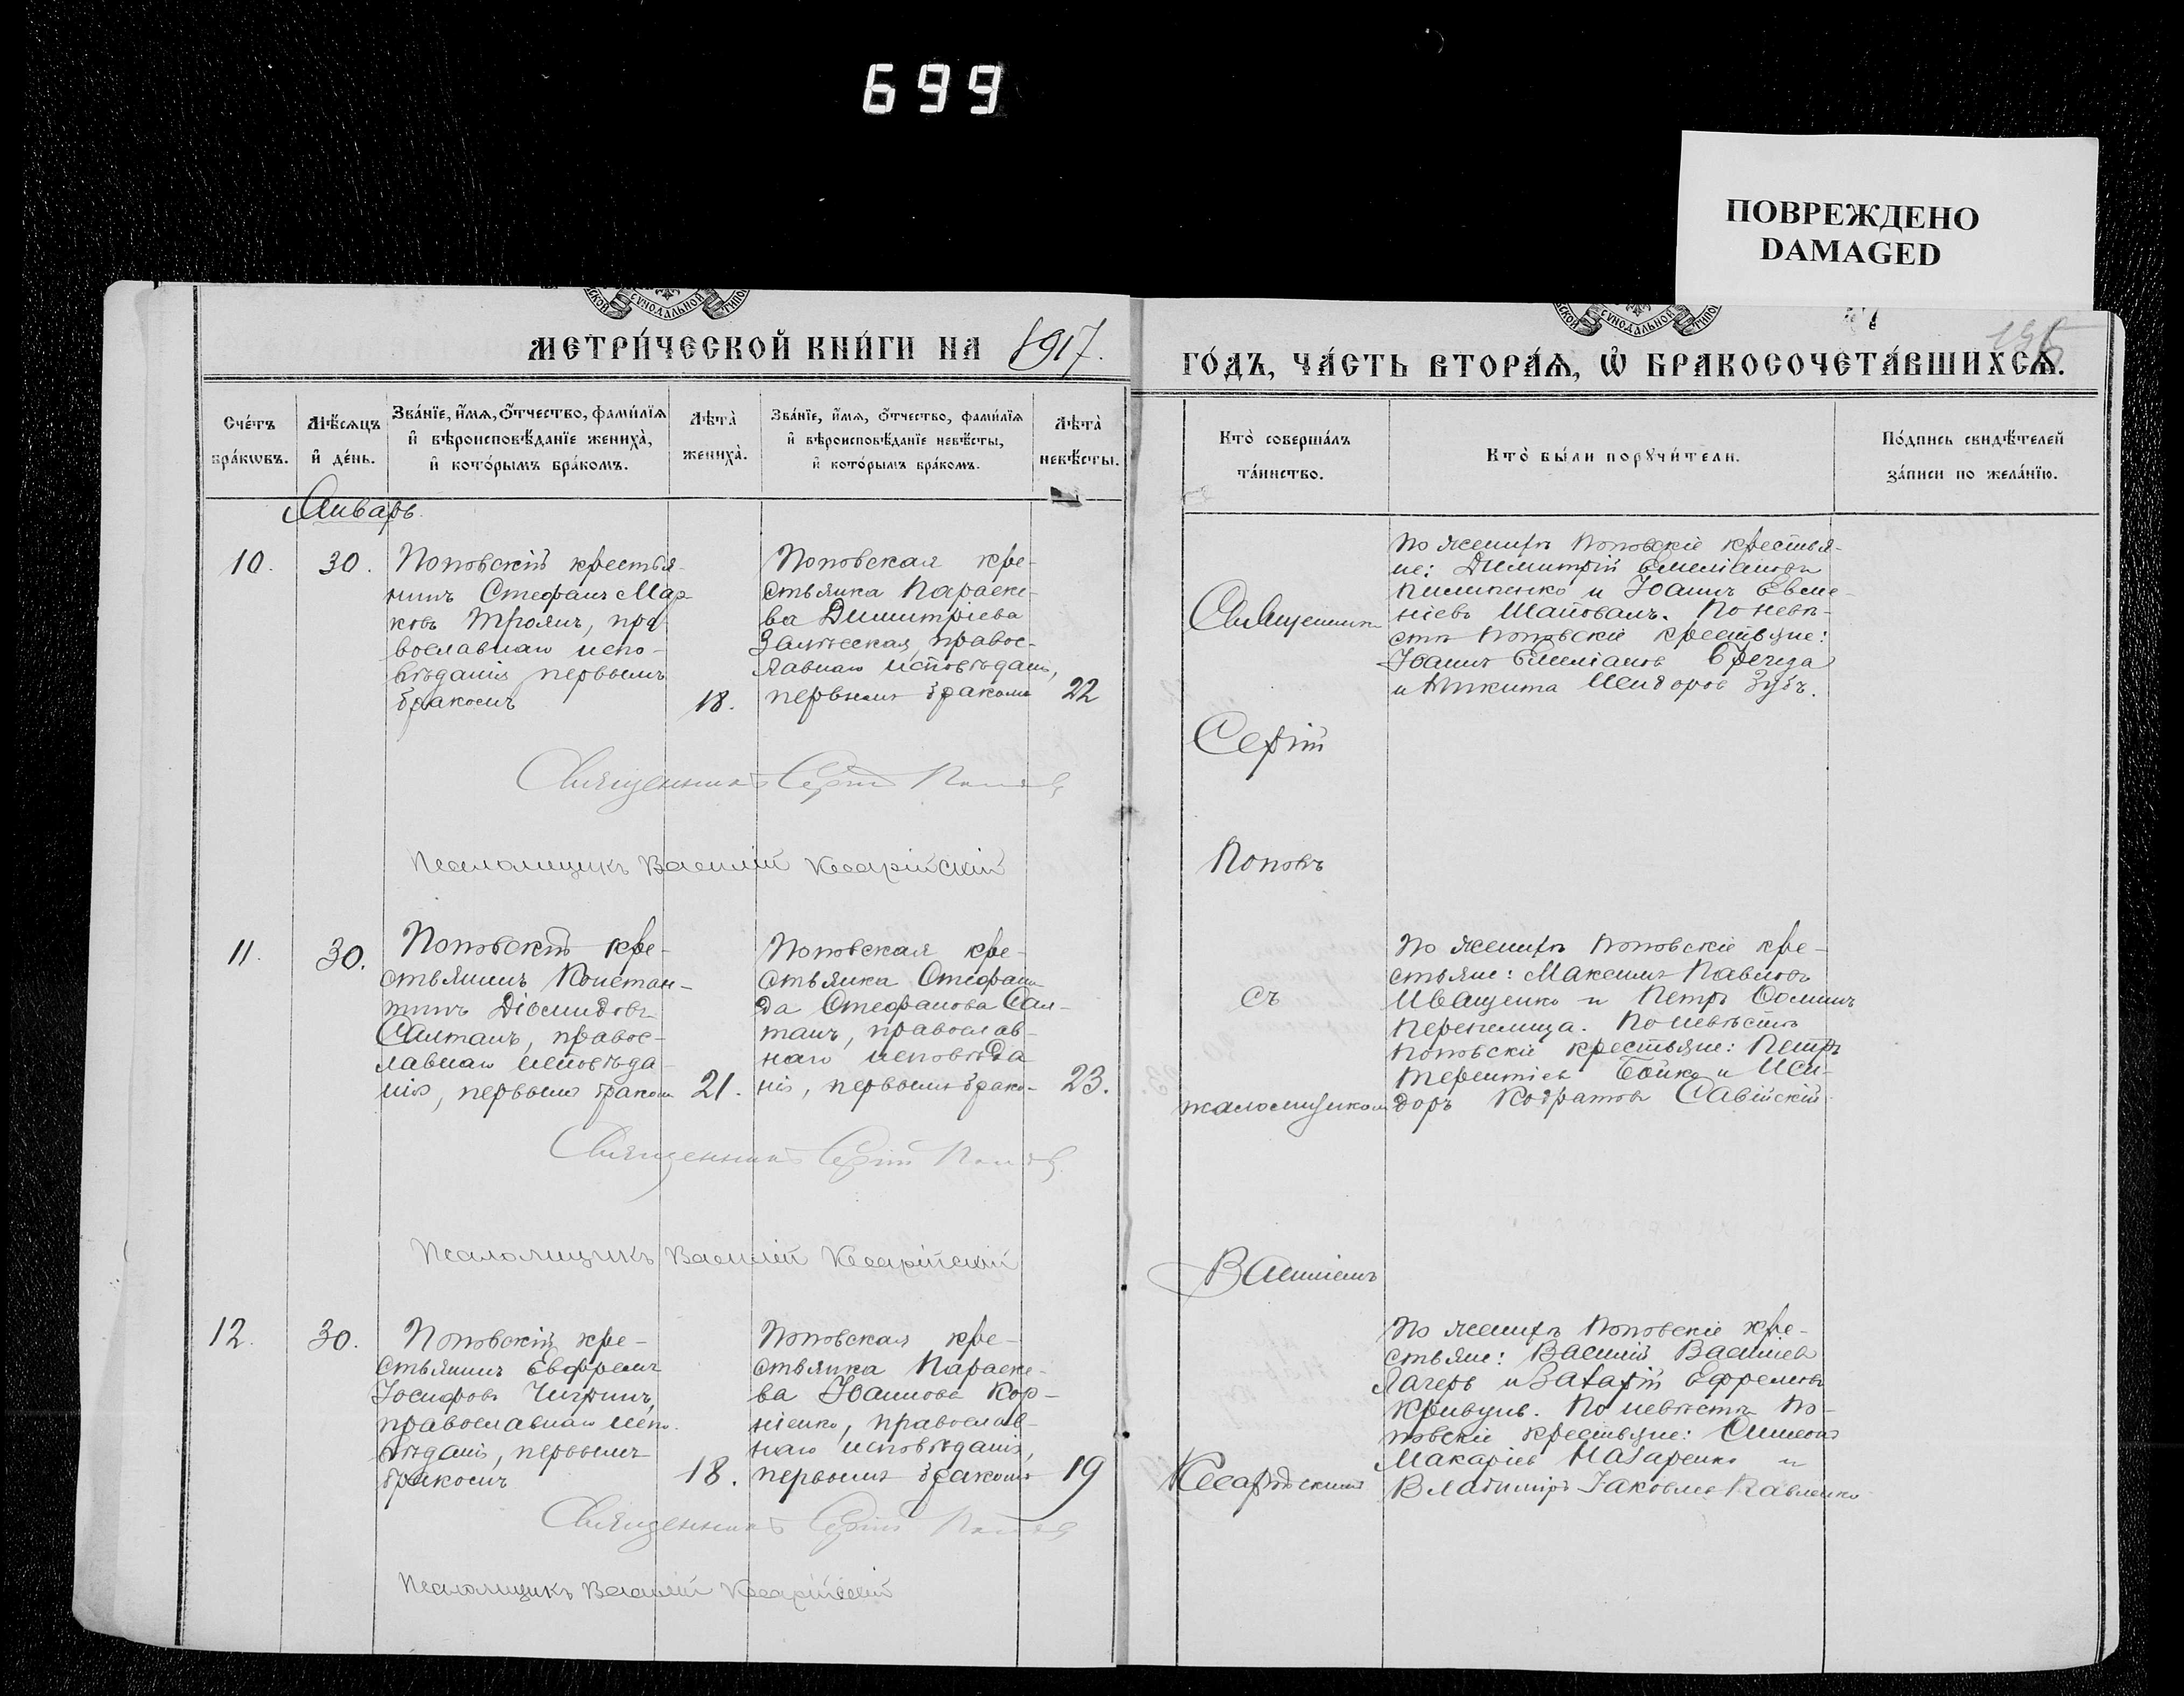 699
ПОВРЕЖДЕНО
DAMAGED
МЕТРИ́ЧЕСКОЙ КНИ́ГИ НА 1917.
ГО́ДЪ, ЧА́СТЬ ВТОРА́Ѧ, Ѡ҆ БРАКОСОЧЕТА́ВШИХСѦ.
Сче́тъ бра́кѡвъ.
Мѣ́сѧцъ и҆ де́нь.
Зва́нїе, и҆́мѧ, ѻ҆́тчество, фами́лїѧ
и҆ вѣроисповѣ́данїе жениха̀,
и҆ кото́рымъ бра́комъ.
Лѣта̀ жениха̀.
Зва́нїе, и҆́мѧ, ѻ҆́тчество, фами́лїѧ
и҆ вѣроисповѣ́данїе невѣ́сты,
и҆ кото́рымъ бра́комъ.
Лѣта̀ невѣ́сты.
Кто̀ соверша́лъ та́инство.
Кто̀ бы́ли порꙋчи́тели.
По́дпись свидѣ́телей
за́писи по жела́нїю.
Январь.
10.
30.
Поповскій крестья-
нинъ Стефанъ Мар-
ковъ Троянъ, пра
вославнаго испо-
вѣданія первымъ
бракомъ
18.
Поповская кре-
стьянка Параске-
ва Димитріева
правос-
лавнаго исповѣданія,
первымъ бракомъ
22
Священникъ
Сергій
Поповъ
съ
псаломщикомъ
Василіемъ
Кесарійскимъ
По женихѣ Поповскіе крестья-
не: Димитрій Емеліановъ
Пилипенко и Іоаннъ Евме-
ніевъ Шаповалъ. По невѣ-
стѣ Поповскіе крестьяне:
Іоаннъ Емеліановъ
и Никита Исидоровъ Зубъ.
Священникъ Сергій Поповъ
Псаломщикъ Василій Кесарійскій
11.
30.
Поповскій кре-
стьянинъ Констан-
тинъ Діомидовъ
Салтанъ, правос-
лавнаго исповѣда
нія, первымъ бракомъ
21.
Поповская кре-
стьянка Стефани
да Стефанова Сал-
танъ, православ-
наго исповѣда
нія, первымъ брако-
23.
По женихѣ Поповскіе кре-
стьяне: Максимъ Павловъ
Иващенко и Петръ Фоминъ
Перепелица. По невѣстѣ
Поповскіе крестьяне: Петръ
Терентіевъ Бойко и Иси-
доръ Кодратовъ Савійскій
Священникъ Сергій Поповъ
Псаломщикъ Василій Кесарійскій
12.
30.
Поповскій кре-
стьянинъ Евфремъ
Іосифовъ Чигринъ,
православнаго испо-
вѣданія, первымъ
бракомъ
18.
Поповская кре-
стьянка Параске-
ва Іоаннова Кор-
ніенко, православ-
наго исповѣданія,
первымъ бракомъ
19
По женихѣ Поповскіе кре-
стьяне: Василій Василіевъ
Лагеръ и Захарій Ефремовъ
Кривунь. По невѣстѣ По-
повскіе крестьяне: Симеонъ
Макаріевъ Назаренко и
Владиміръ Іаковлевъ Павленко
Священникъ Сергій Поповъ
Псаломщикъ Василій Кесарійскій